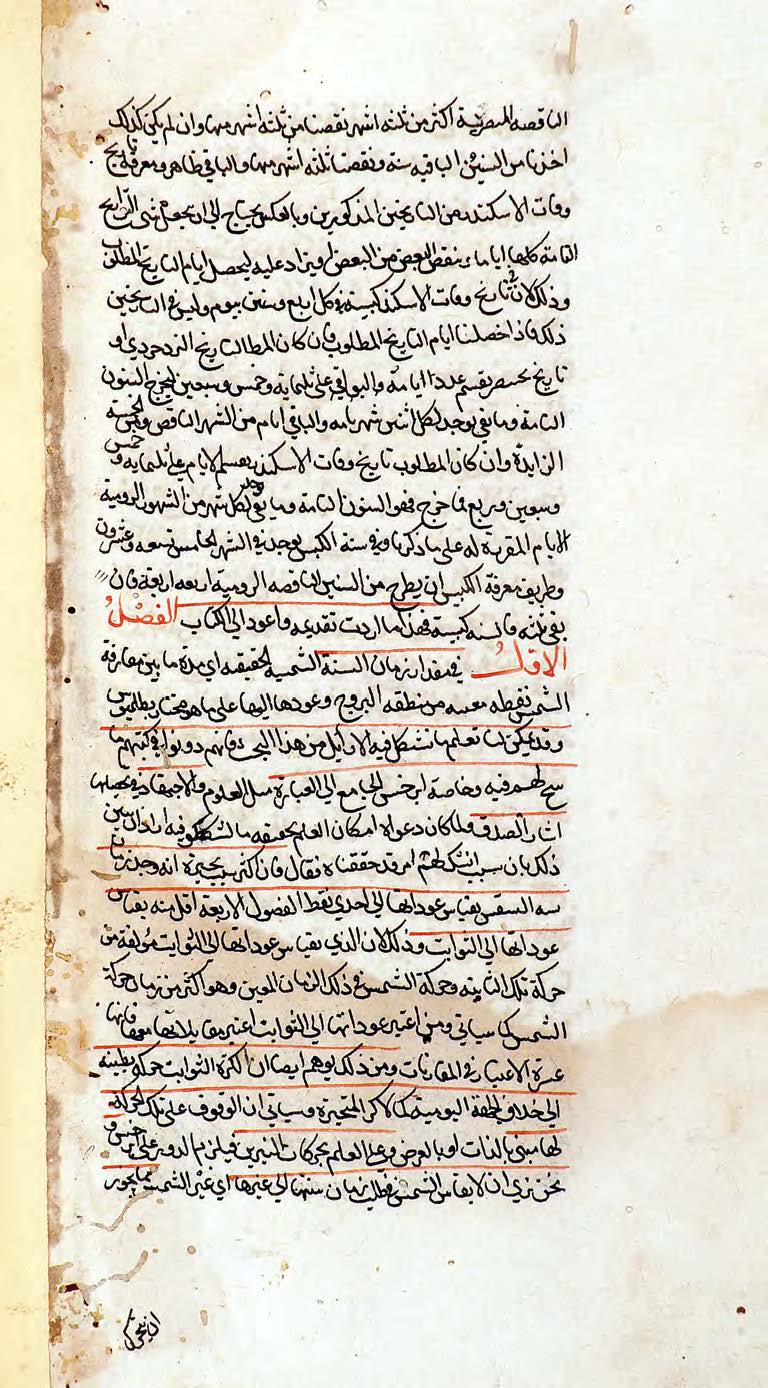 الناقصه المصريّة اكثر من ثلثه اشهر نقصنا من ثلثه اشهر منها وان لم يكن كذلك
اخذنا من السنين الباقيه سنة ونقصنا ثلثه اشهر منها والباقي ظاهر ومعرفة تاريخ
وفات الاسكندر من التاريخين المذكورين وبالعكس يحتاج الى ان يجعل التواريخ
التامة كلها اياما وينقص البعض من البعض او يزاد عليه ليحصل ايام التاريخ المطلوب
وذلك لان في تاريخ وفات الاسكندر كبيسة في كل اربع وسنين بيوم وليس في التاريخين
ذلك فاذا حصلنا ايام التاريخ المطلوب فان كان المطالتاريخ اليزدجردي او
تاريخ بختنصر يقسم عدد ايامه والبواقي على ثلثمايه وخمس وسبعين ليخرج السنون
التامة وما بقي يوجد لكل ثلثين شهر تامه والباقي ايام من الشهر الناقص ومن الخمسة
الزايدة وان كان المطلوب تاريخ وفات الاسكندر يقسم الايام على ثلثمايه وخمس
وسبعين وربع فما خرج فهو السنون التامة وما بقي يوجد لكل شهر من الشهور الرومية
الايام المقربة له على ما ذكرنا وفي سنة الكبس يوجد في الشهر الخامس تسعه وعشرون
وطريق معرفة الكبس ان يطرح من السنين الناقصه الرومية اربعه اربعة فان
بقي ثلثه فالسنه كبيسة فهذا ما اردت تقديمه واعود الى الكتاب الفصل
الاول في مقدار زمان السنة الشمسية الحقيقه اي مدة ما بين مفارقة
الشمس نقطه معينه من منطقه البروج وعودها اليها على ما هو مختار بطلميوس
وقد يمكن لنا تعلم ما تشكل فيه الاوايل من هذا البحث فانهم دونوا في كتبهم ما
سنح لهم فيه وخاصة ابرخس الجامع الى العبارة مثل العلوم والاجتهاد في تحصيلها
اثار الصدق ولما كان دعواه امكان العلم بحقيقه ما تشككوا فيه اراد ان يبين
ذلك بان سبب تشككهم امر قد حققناه فقال فان اكثر سبب تحيره انه وجد زمان
سنه الشمس بقياس عودتها الى احدى نقط الفصول الاربعة اقل منه بقياس
عوداتها الى الثوابت وذلك لان الذي بقياس عوداتها الى الثوابت مؤلفة من
حركة تلك الثابته وحركة الشمس في ذلك الزمان المعين وهو اكثر من زمان حركة
الشمس كما سياتي ومن اعتبر عوداتها الى الثوابت اعتبر مقابلاتها معها فانها
عسرة الاعتبار في المقارنات ومن ذلك يوهم ايضا ان الكرة الثوابت حركة بطيئه
الى خلاف الحركة اليومية كما لاكر المتحيرة وسياتي ان الوقوف على تلك الحركة
لها مبني بالذات او بالعرض على العلم بحركات النيرين فيلزم الدور على ابرخس و
نحن نرى ان لا يقاس الشمس في طلب زمان سنتها الى غيرها اي غير الشمس مما يجوز